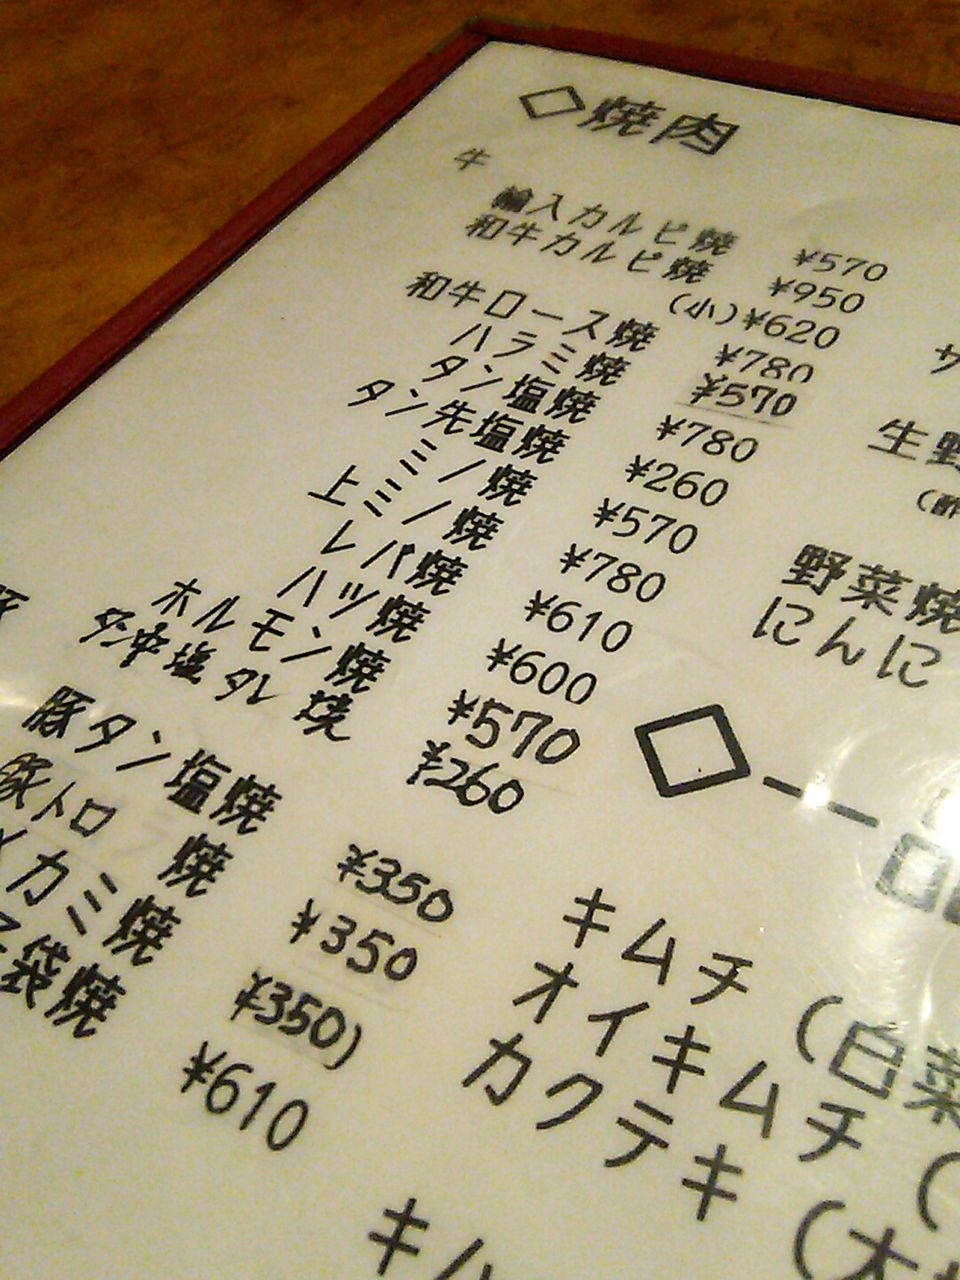 ◇焼肉
牛
輸入カルビ焼 ¥570
和牛カルビ焼 ¥950
(小)¥620
和牛ロース焼 ¥780
ハラミ焼 ¥570
タン塩焼 ¥780
タン先塩焼 ¥260
ミノ焼 ¥570
上ミノ焼 ¥780
レバ焼 ¥610
ハツ焼 ¥600
ホルモン焼 ¥570
塩タレ焼 ¥260
豚
豚タン塩焼 ¥350
豚トロ焼 ¥350
カミ焼 ¥350)
袋焼 ¥610
サ
生野
(酢
野菜焼
にんに
◇一
キムチ(白菜
オイキムチ(
カクテキ(大
キム